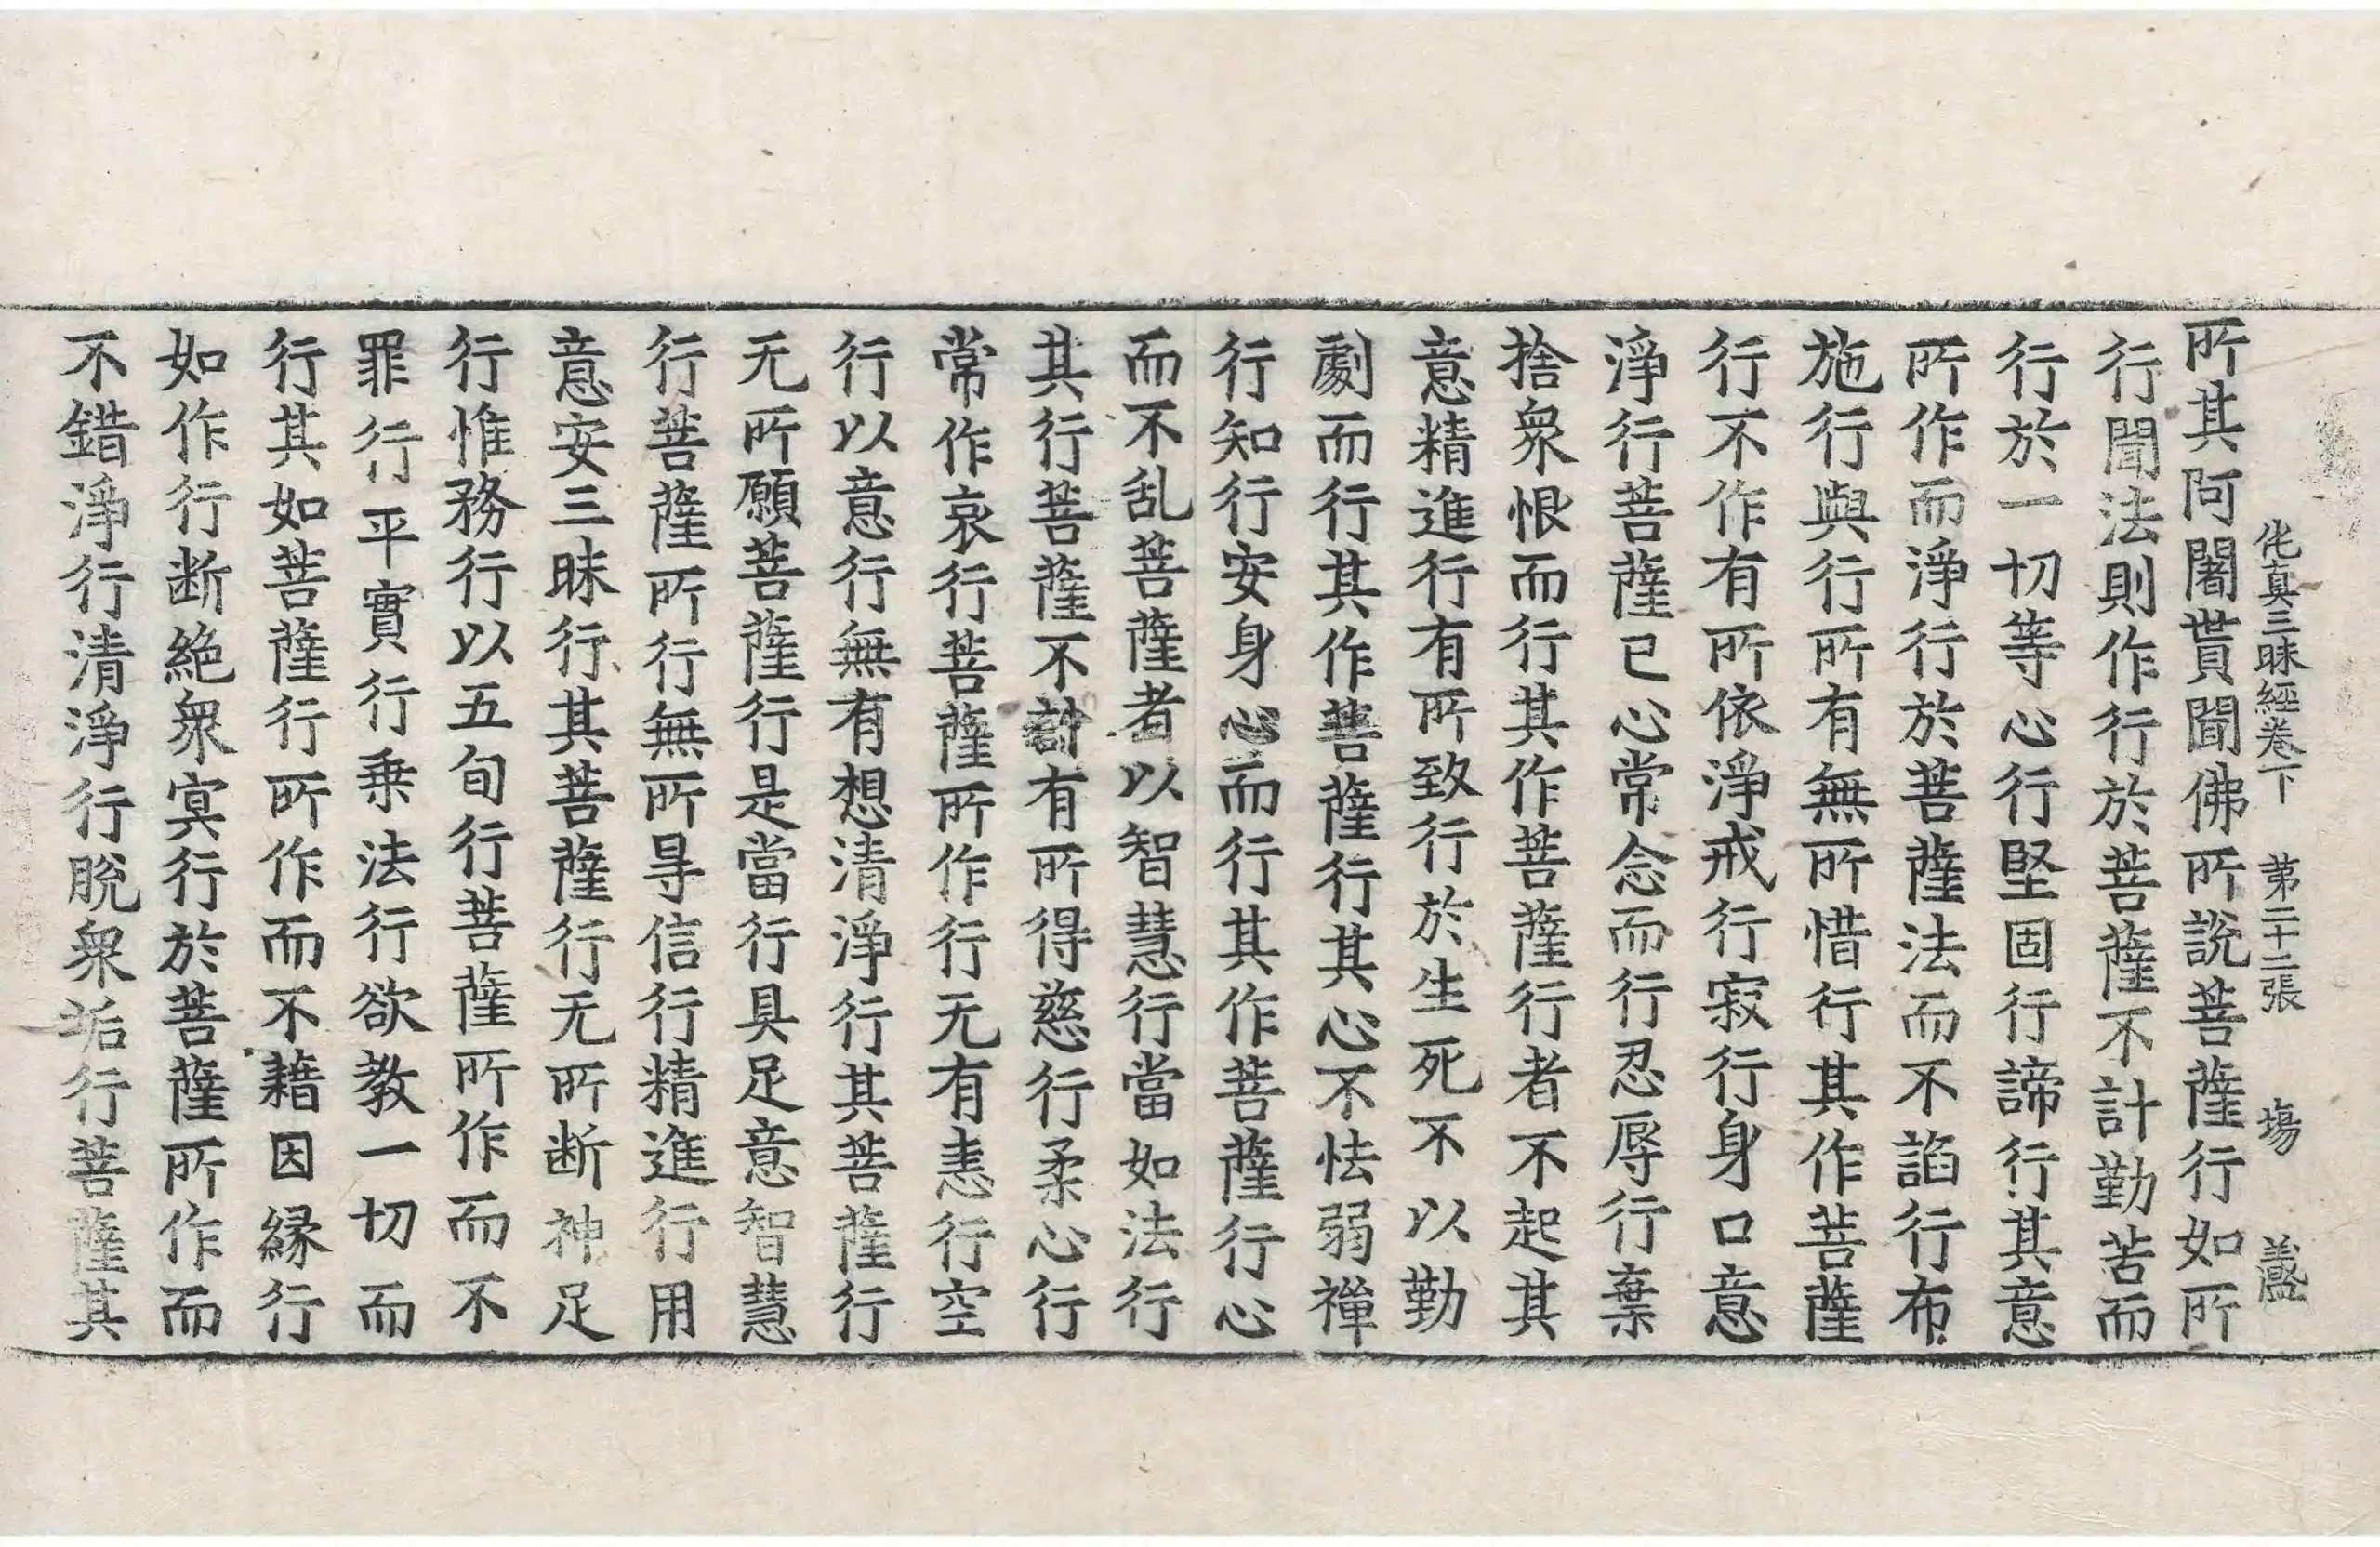 伅真三昧經卷下 第二十二張 塲 義盛
所其阿闍貰聞佛所說菩薩行如所
行聞法則作行於菩薩不計勤苦而
行於一切等心行堅固行諦行其意
所作而淨行於菩薩法而不諂行布
施行與行所有無所惜行其作菩薩
行不作有所依淨戒行寂行身口意
淨行菩薩已心常念而行忍辱行棄
捨衆恨而行其作菩薩行者不起其
意精進行有所致行於生死不以勤
劇而行其作菩薩行其心不怯弱禪
行知行安身心而行其作菩薩行心
而不乱菩薩者以智慧行當如法行
其行菩薩不計有所得慈行柔心行
常作哀行菩薩所作行无有恚行空
行以意行無有想清淨行其菩薩行
无所願菩薩行是當行具足意智慧
行菩薩所行無所㝵信行精進行用
意安三昧行其菩薩行无所断神足
行惟務行以五旬行菩薩所作而不
罪行平實行乗法行欲教一切而
行其如菩薩行所作而不藉因縁行
如作行断絶衆㝠行於菩薩所作而
不錯淨行清淨行脫衆垢行菩薩其